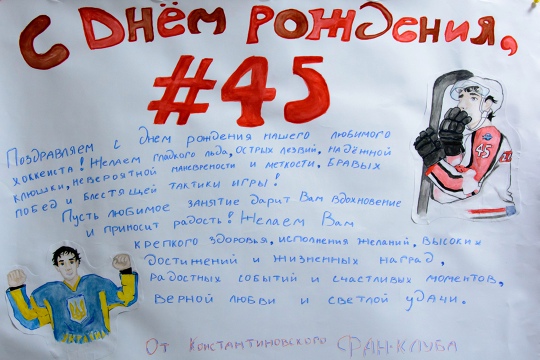 С Днём рождения,
#45
Поздравляем с днем рождения нашего любимого
хоккеиста! Желаем гладкого льда, острых лезвий, надёжной
клюшки, невероятной маневрености и меткости. Бравых
побед и блестящей тактики игры!
Пусть любимое занятие дарит Вам вдохновение
и приносит радость! Желаем Вам
крепкого здоровья, исполнения желаний, высоких
достижений и жизненных наград,
радостных событий и счастливых моментов,
верной любви и светлой удачи.
От Константиновского Фан-клуба
45
УКРАЇНА